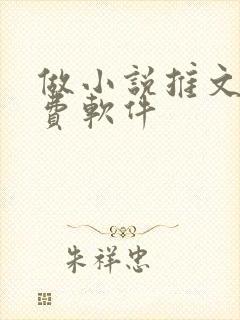 做小説推文
費軟件
朱祥忠